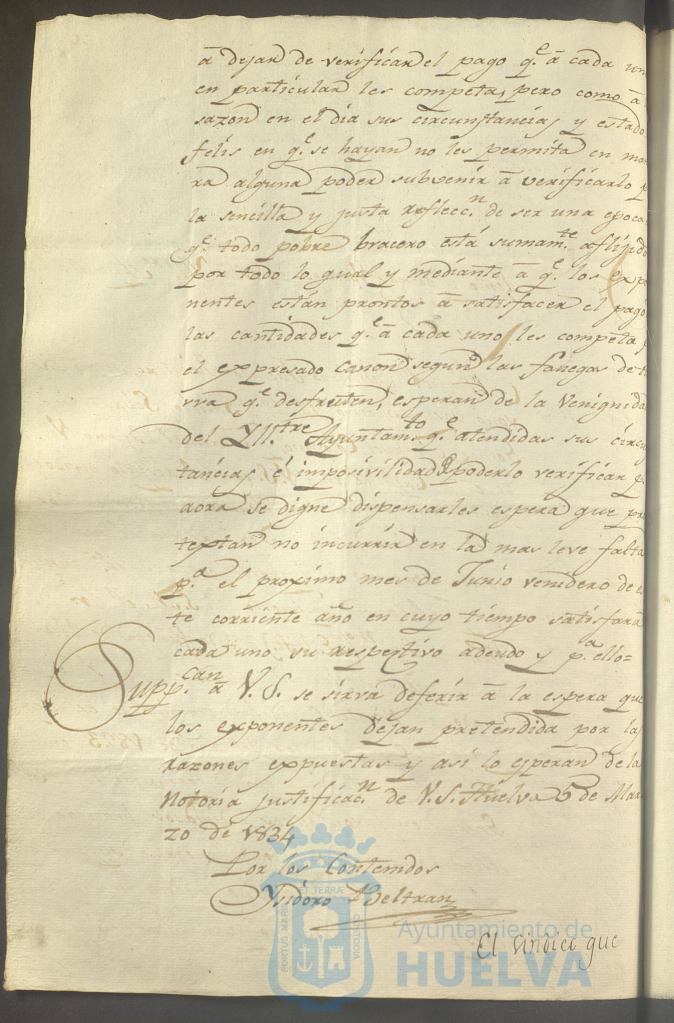 â dejar de verificar el pago q.e â cada un
en particular les competa, pero como â
sazon en el dia sus circunstancias y estado
felis en q.e se hayan no les permita en
ra alguna poder subvenir â verificarlo
la sencilla y justa reflecc.n de ser una epoca
q.e todo pobre bracero está sumam.te aflijido
por todo lo qual y mediante â q.e los expo
nentes están prontos â satisfacer el pago
las cantidades q.e â cada uno les competa
el expresado canon segun las fanegas de
rra q.e desfruten, esperan de la Venignida
del Yll.tre Ayuntam.to q.e atendidas sus circu
tancias é imposivilidad poderlo verificar p
aora se digne dispensarles espera que pro
textan no incurrir en la mas leve falta
p.a el proximo mes de Junio venidero de
te corriente año en cuyo tiempo satisfara
cada uno su respectivo adeudo y p.a ello=
Supp.can â V. S. se sirva deferir â la espera que
los exponentes dejan pretendida por las
razones expuestas y asi lo esperan de la
notoria justificac.n de V. S. Huelva 5 de Mar
zo de 1834
Por los Contenidos
Ysidoro Beltran
El Sindico que
PORTUS MARIS ET TERRÆ CUSTODIA
Ayuntamiento de
HUELVA